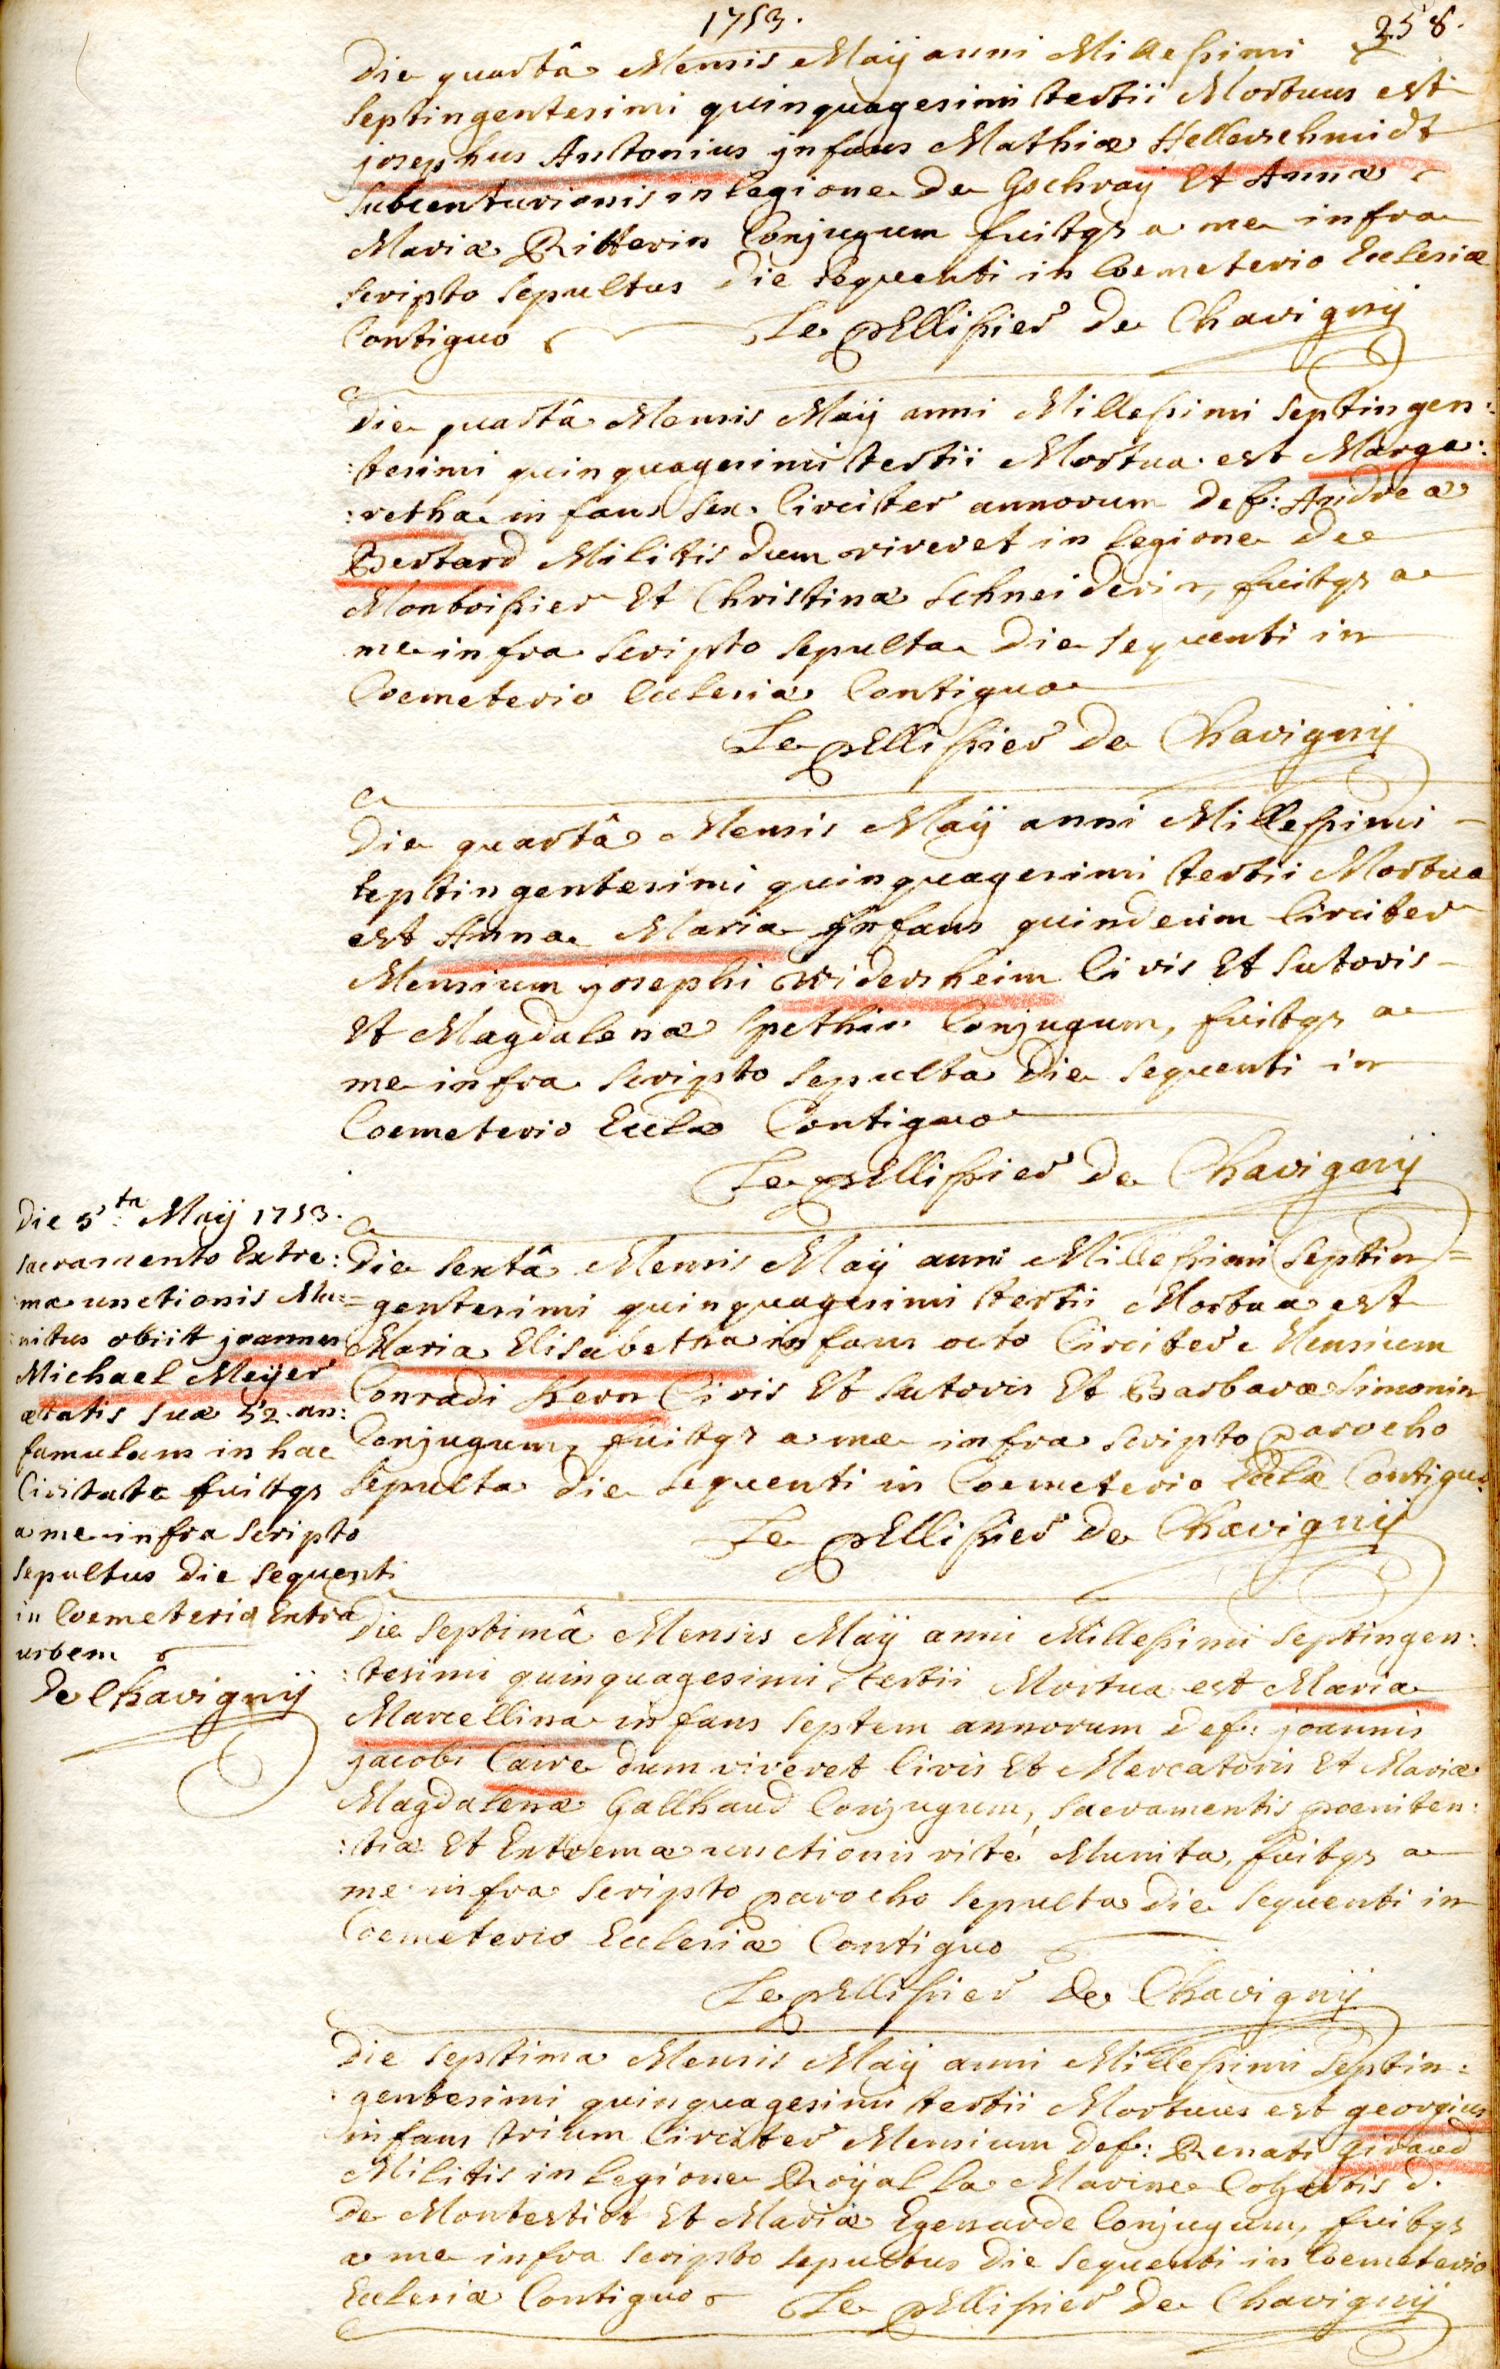 1753.
258.
Die quartâ Mensis Maÿ anni Millesimi
Septingentesimi quinquagesimi tertii Mortuus est
josephus Antonius jnfans Mathiæ Hellerschmidt
Subcenturionis in legione De Gschraÿ Et Annæ
Mariæ Ritterin Conjugum fuitqs a me infra
scripto Sepultus Die sequenti in Coemeterio Ecclesiæ
Contiguo
Le pEllissier De Chavignÿ
Die quartâ Mensis Maÿ anni Millesimi Septingen:
:tesimi quinquagesimi tertii Mortua est Marga:
:retha infans sex Circiter annorum Def: Andreæ
Bertard Militis Dum viveret in legione De
Monboissier Et Christinæ Schneiderin, fuitqs a
me infra scripto Sepulta Die Sequenti in
Coemeterio Ecclesiæ Contiguo
Le pEllissier De Chavignÿ
Die quartâ Mensis Maÿ anni Millesimi
septingentesimi quinquagesimi tertii Mortua
est Anna Maria jnfans quindecim Circiter
Mensium josephi Widersheim Civis Et Sutoris
Et Magdalenæ Spethin Conjugum, fuitqs a
me infra scripto Sepulta Die Sequenti in
Coemeterio Ecclæ Contiguo
Le pEllissier De Chavignÿ
Die 5ta Maÿ 1753.
sacramento Extre:
mæ unctionis Mu:
:nitus obiit joannes
Michael Meÿer
ætatis suæ 52. an:
famulans in hac
Civitate fuitqs
a me infra scripto
sepultus Die Sequenti
in Coemeterio Extra
urbem
De Chavignÿ
Die sextâ Mensis Maÿ anni Millesimi Septin=
=gentesimi quinquagesimi tertii Mortua est
Maria Elisabetha infans octo Circiter Mensium
Conradi Kern Civis Et Sutoris Et Barbaræ Simonin
Conjugum, fuitqs a me infra scripto parocho
Sepulta Die Sequenti in Coemeterio Ecclæ Contiguo
Le pEllissier De Chavignÿ
Die Septimâ Mensis Maÿ anni Millesimi Septingen:
:tesimi quinquagesimi tertii Mortua est Maria
Marcellina infans Septem annorum Def: joannis
jacobi Caire dum viveret Civis Et Mercatoris Et Mariæ
Magdalenæ Gallhaud Conjugum, Sacramentis poeniten:
:tiæ Et Extremæ unctionis rité Munita, fuitqs a
me infra scripto parocho Sepulta Die Sequenti in
Coemeterio Ecclesiæ Contiguo
Le pEllissier De Chavignÿ
Die Septima Mensis Maÿ anni Millesimi Septin:
:gentesimi quinquagesimi tertii Mortuus est georgius
infans trium Circiter Mensium Def: Renati giraud
Militis in legione Roÿal la Marine Cohortis d.
De Montertiot Et Mariæ Egenarde Conjugum, fuitqs
a me infra scripto Sepultus Die Sequenti in Coemeterio
Ecclesiæ Contiguo
Le pEllissier De Chavignÿ